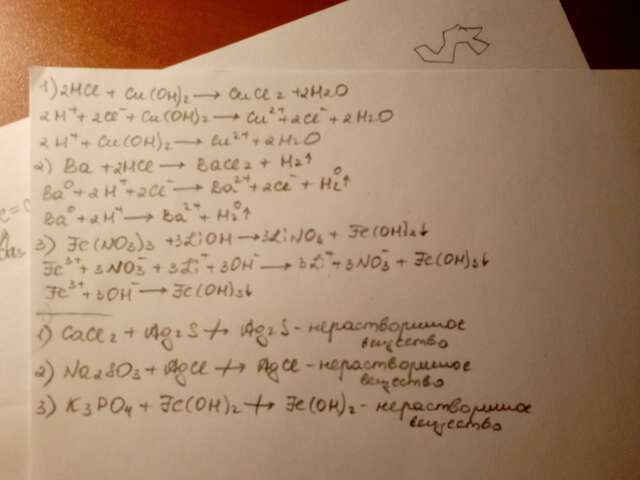 1) 2HCl + Cu(OH)₂ → CuCl₂ + 2H₂O
2H⁺ + 2Cl⁻ + Cu(OH)₂ → Cu²⁺ + 2Cl⁻ + 2H₂O
2H⁺ + Cu(OH)₂ → Cu²⁺ + 2H₂O
2) Ba + 2HCl → BaCl₂ + H₂↑
Ba⁰ + 2H⁺ + 2Cl⁻ → Ba²⁺ + 2Cl⁻ + H₂⁰↑
Ba⁰ + 2H⁺ → Ba²⁺ + H₂⁰↑
3) Fe(NO₃)₃ + 3LiOH → 3LiNO₃ + Fe(OH)₃↓
Fe³⁺ + 3NO₃⁻ + 3Li⁺ + 3OH⁻ → 3Li⁺ + 3NO₃⁻ + Fe(OH)₃↓
Fe³⁺ + 3OH⁻ → Fe(OH)₃↓
1) CaCl₂ + Ag₂S ↛ Ag₂S - нерастворимое
вещество
2) Na₂SO₃ + AgCl ↛ AgCl - нерастворимое
вещество
3) K₃PO₄ + Fe(OH)₂ ↛ Fe(OH)₂ - нерастворимое
вещество